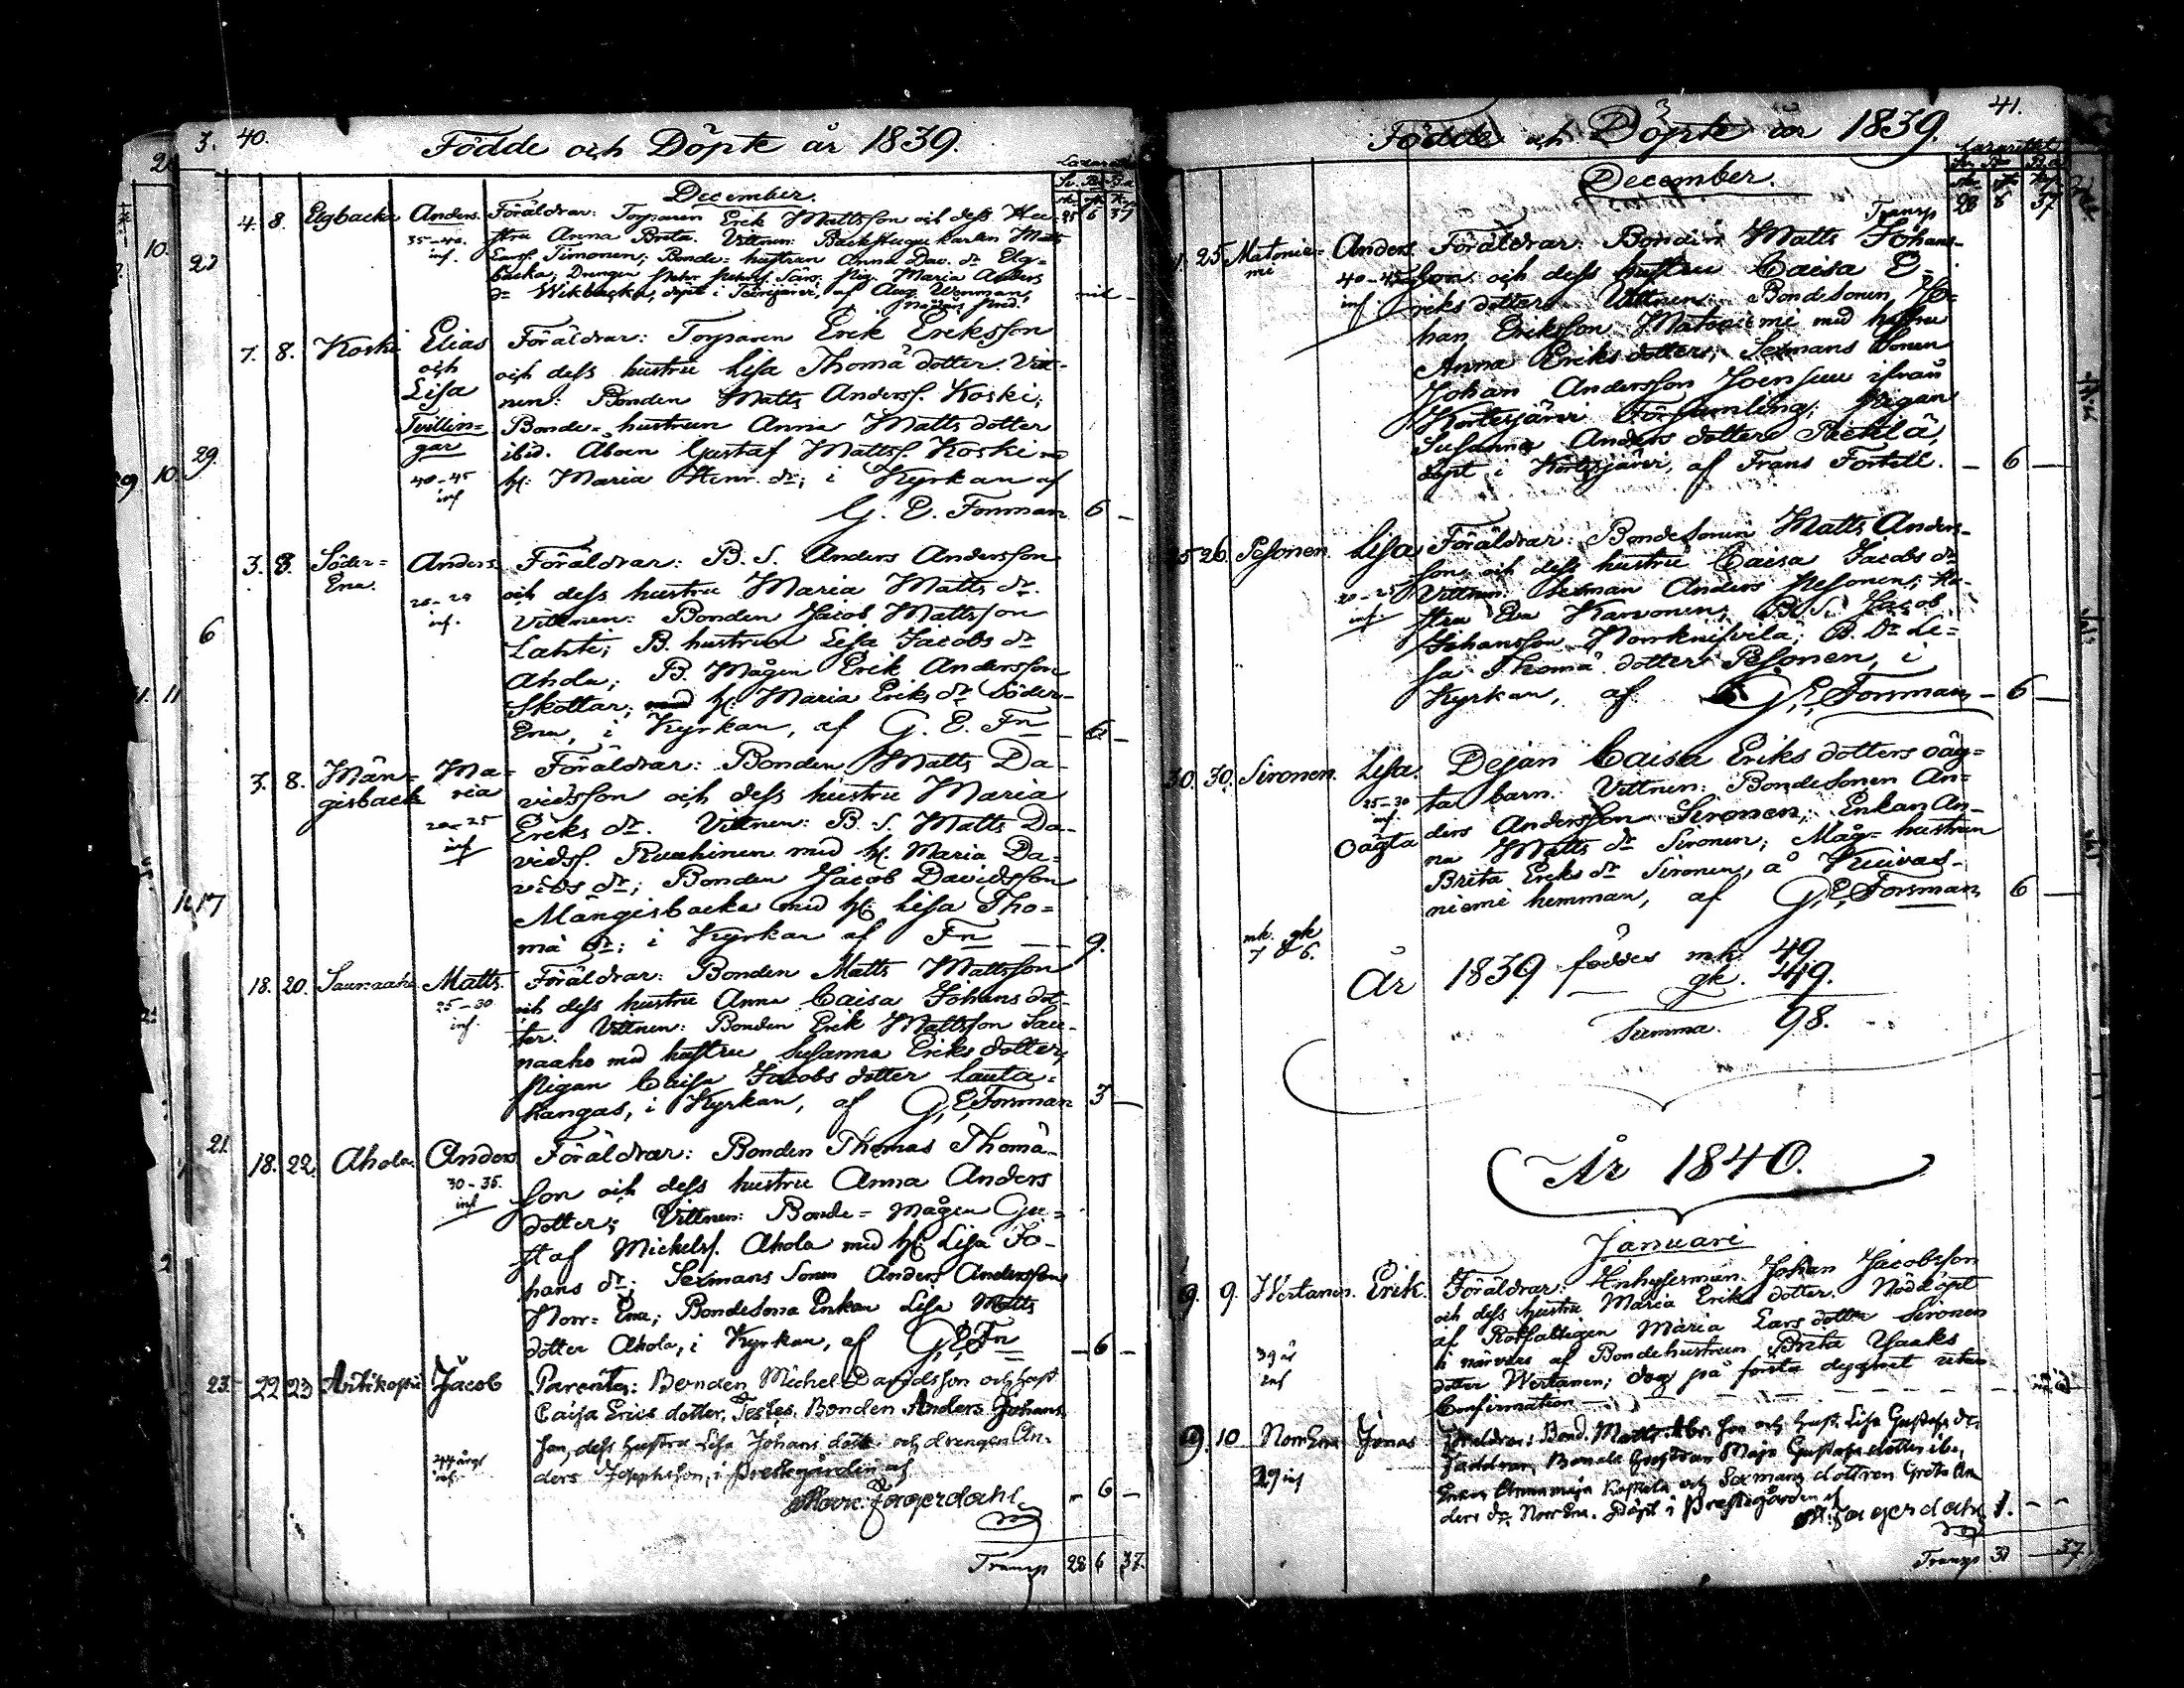 3. 40.
Födde och Döpte år 1839.
December.
4. 8. Elgbacka Anders. Föräldrar: Torparen Erik Mattsson och dess Hu- 25 6 37
35-40. inf. stru Anna Brita. Vittnen: Backstugukarlen Matts
Larss. Timonen; Bonde-hustrun Anna Dav. dr Elg-
backa; Drengen Pehr Pehrss. Pig. Maria Anders
dr Wikbacka, döpt i af Aug. Wenman,
nil
7. 8. Koski Elias Föräldrar: Torparen Erik Eriksson
och och dess hustru Lisa Thomä dotter. Vitt-
Lisa nen: Bonden Matts Anderss. Koski;
Tvillin= Bonde-hustrun Anna Matts dotter
gar ibid. Åboen Gustaf Mattss. Koski
40-45 inf h: Maria Henr. dr; i Kyrkan af
G. E. Forsman 6 —
3. 8. Söder= Anders. Föräldrar: B. S. Anders Andersson
Ena. och dess hustru Maria Matts dr.
inf. Vittnen: Bonden Jacob Mattsson
Lahti; B. hustrun Lisa Jacobs dr
Ahola; B. Mågen Erik Andersson
Skottar; h: Maria Eriks dr Söder-
Ena, i Kyrkan, af G. E. Fn — 6 —
3. 8. Män= Ma= Föräldrar: Bonden Matts Da-
gisbacka ria vidsson och dess hustru Maria
20-25 inf Eriks dr. Vittnen: B. S. Matts Da-
vidss. Ruuhinen med h: Maria Da=
vids dr; Bonden Jacob Davidsson
Mängisbacka med h: Lisa Tho=
mä dr; i Kyrkan af Fn — 9.
18. 20. Saunaaho Matts. Föräldrar: Bonden Matts Mattsson
25-30 inf. och dess hustru Anna Caisa Johans dot-
ter. Vittnen: Bonden Erik Mattsson Sau-
naaho med hustru Susanna Eriks dotter,
Pigan Caisa Jacobs dotter Lauta=
kangas, i Kyrkan, af G. E. Forsman 3 —
18. 22. Ahola. Anders Föräldrar: Bonden Thomas Thomä-
30-35. inf son och dess hustru Anna Anders
dotter; Vittnen: Bonde=Mågen Gu=
staf Mickelss. Ahola med h: Lisa Jo-
hans dr; Sexmans Sonen Anders Andersson
Norr=Ena; Bondesona Enkan Lisa Matts
dotter Ahola, i Kyrkan, af G. E. Fn — 6 —
22 23 Antikoski Jacob Parentes: Bonden Michel Davidsson och hust
Caisa Erics dotter. Testes. Bonden Anders Johans
son, dess hustru Lisa Johans dott. och drengen An-
ders Josephsson, i Prestgården af
Fogerdahl — 6 —
Transp 28 6 37.
41.
Födde och Döpte år 1839.
December.
Transp 28 6 37
25 Matonie= Anders. Föräldrar: Bonden Matts Johans-
mi 40-45 inf. son och dess hustru Caisa E-
riks dotter. Vittnen: Bondesonen Jo=
han Eriksson Matoniemi med hustru
Anna Eriks dotter; Sexmans sonen
Johan Andersson Joensuu ifrån
Kortesjärvi Församling; Pigan
Susanna Anders dotter
döpt i Kortesjärvi, af Frans Fortell. — 6 —
25 26. Pesonen. Lisa Föräldrar: Bondesonen Matts Anders-
20-25 inf. son och dess hustru Caisa Jacobs dr
Vittnen: Sexman Anders Pesonen; hu-
stru Eva Karvonen; B. S. Jacob
Johansson B. Dr Li=
sa Thomä dotter Pesonen, i
Kyrkan, af G. E. Forsman — 6 —
30. 30. Sironen. Lisa. Dejan Caisa Eriks dotters oäg=
25-30 inf. ta barn. Vittnen: Bondesonen An=
Oägta ders Andersson Sironen; Enkan An-
na Matts dr Sironen; Måg=hustrun
Brita Eriks dr Sironen, å Kuivas-
niemi hemman, af G. E. Forsman 6 —
mk. gk
7 6.
År 1839 föddes mk. 49.
gk. 49.
Summa. 98.
År 1840.
Januari
9. 9. Wertanen. Erik. Föräldrar: Inhysesman Johan Jacobsson
och dess hustru Maria Eriks dotter. Nöddöpt
af Rotfattigen Maria Lars dotter Sironen
39 år inf i närvaro af Bondehustrun Brita Isaaks
dotter Wertanen; dog på första dygnet utan
Confirmation — — —
9. 10 Norr Ena Jonas Föräldrar: Bond. Matts och hust. Lisa Gustafs dr.
29 inf Faddrar, Bonde hustrun Maja Gustafs dotter ib.,
Enkan Annamaja och Sexmans dottren Greta An
ders dr Norr Ena. Döpt i Prestegården af
Fogerdahl 1. — —
Transp 37